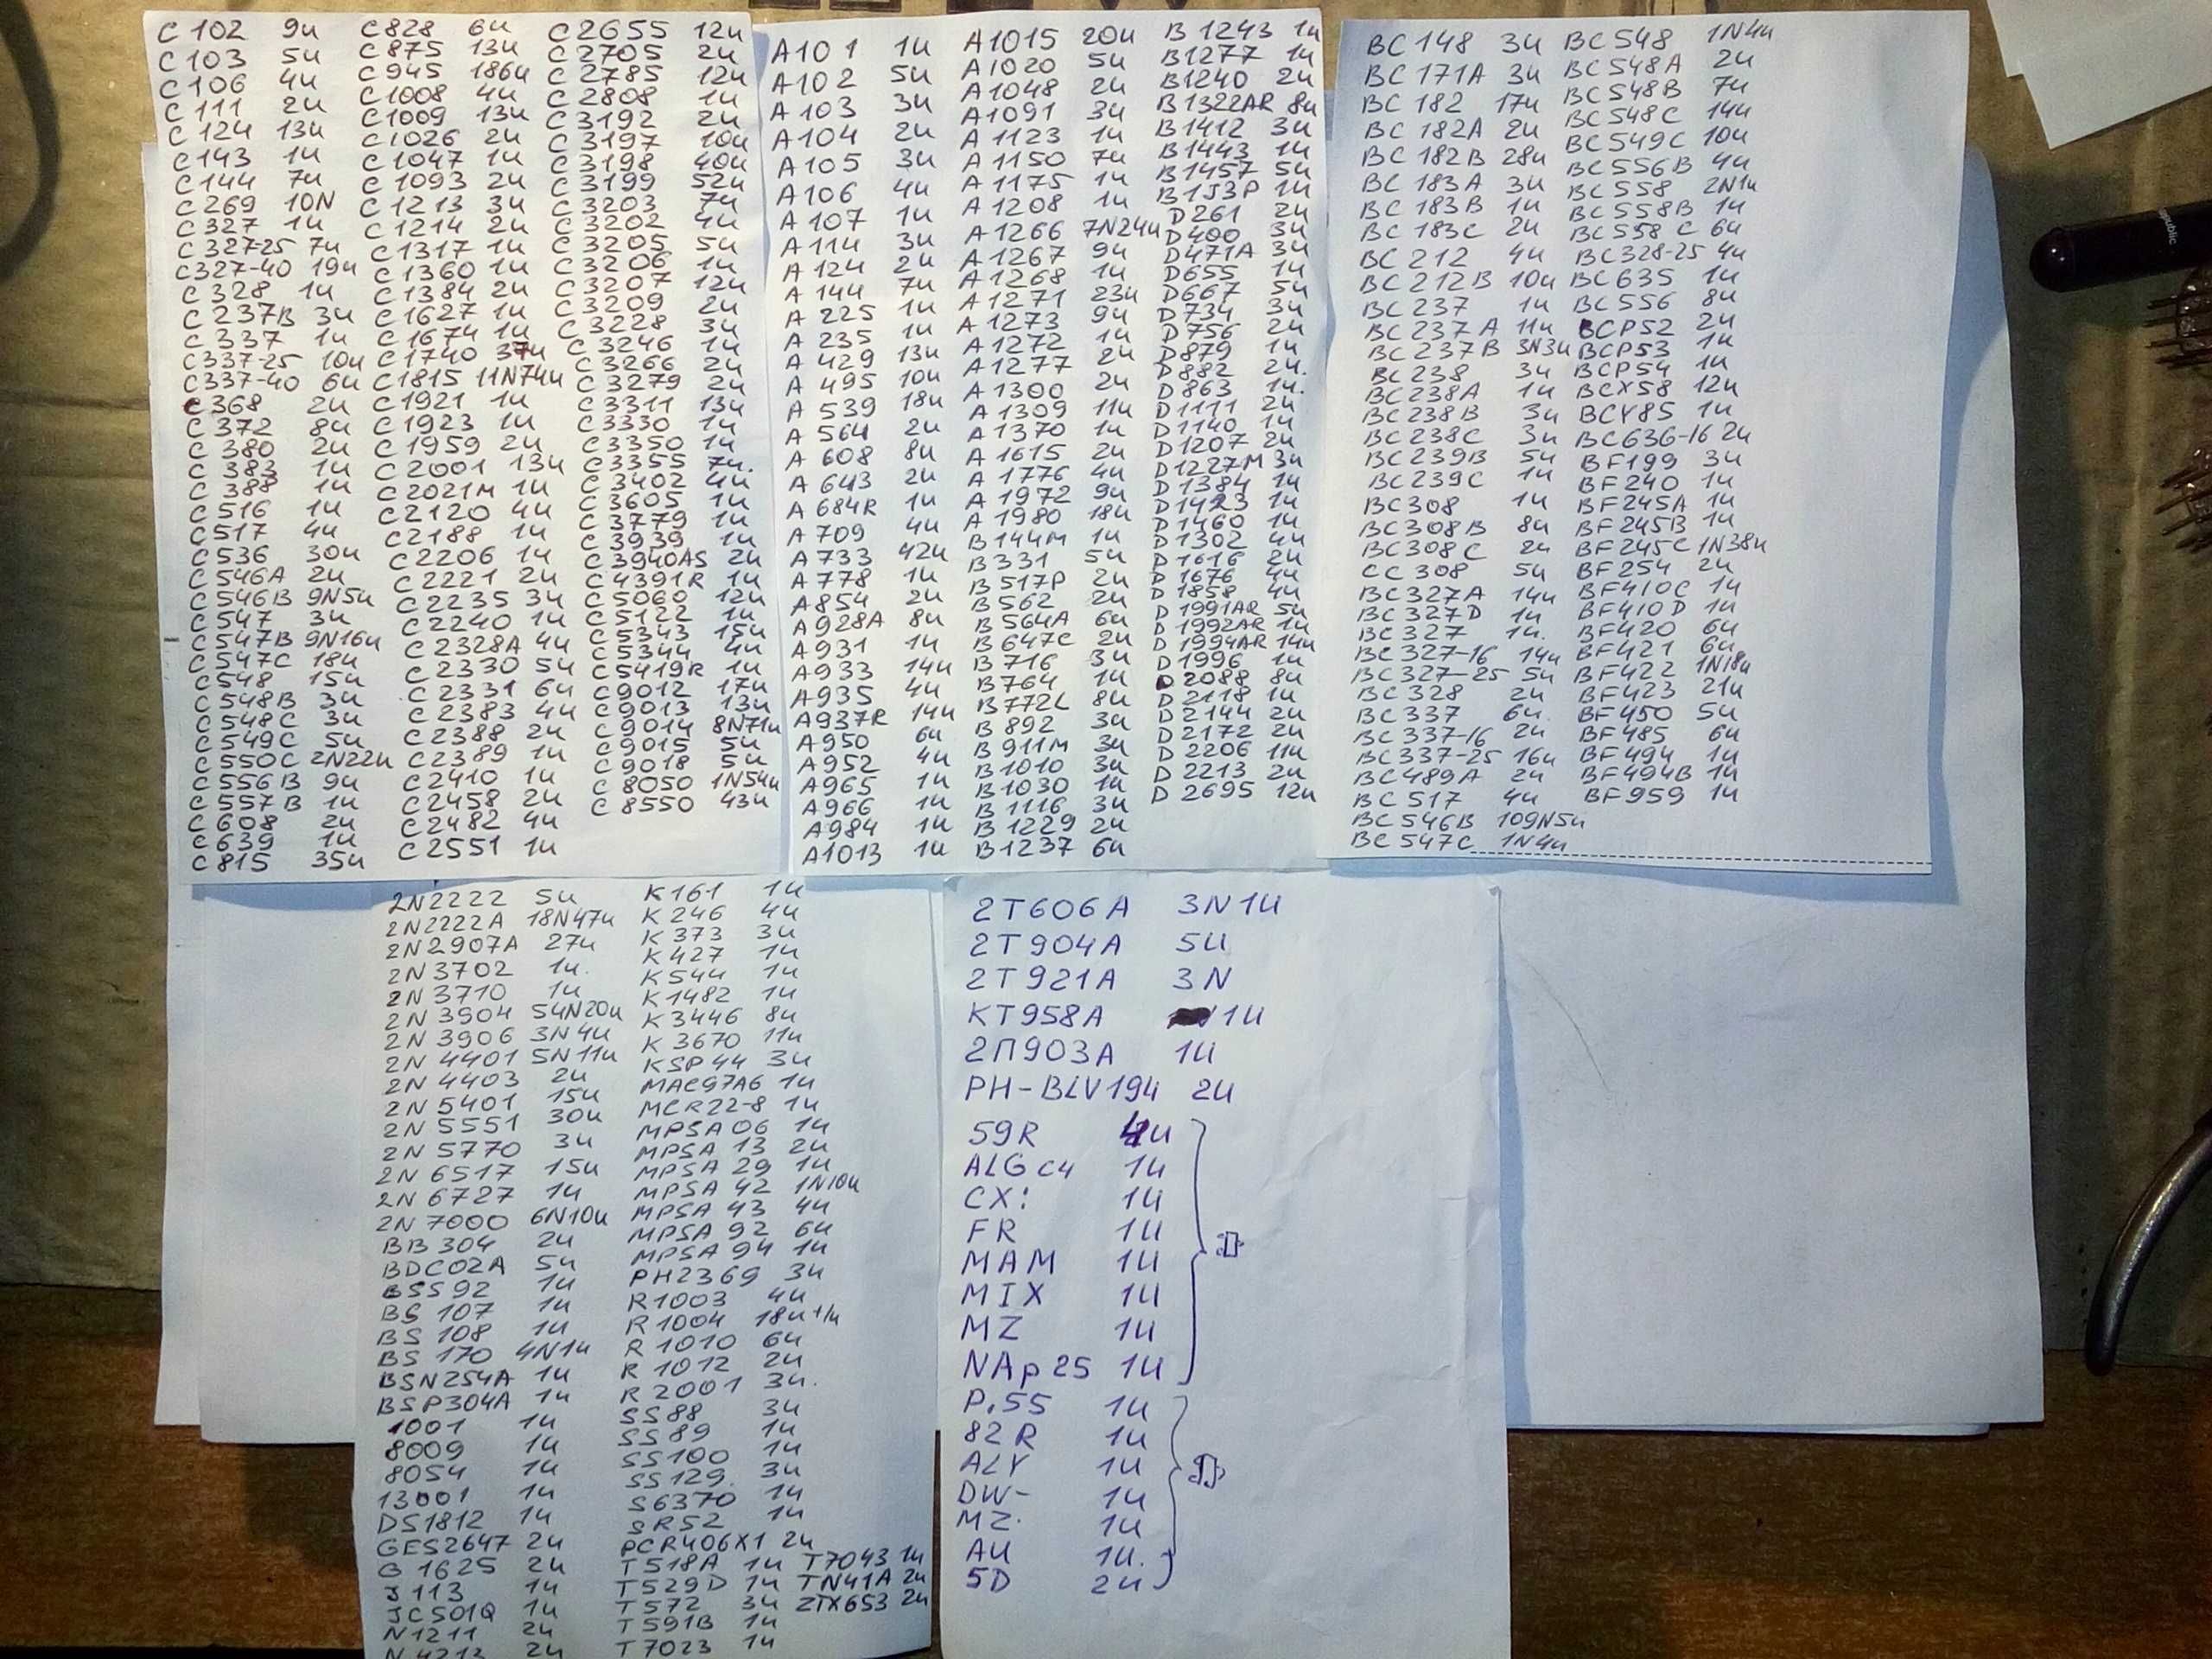 C 102 9и
C 103 5и
C 106 4и
C 111 2и
C 124 13и
C 143 1и
C 144 7и
C 269 10N
C 327 1и
C 327-25 7и
C 327-40 19и
C 328 1и
C 237B 3и
C 337 1и
C337-25 10и
C337-40 6и
C 368 2и
C 372 8и
C 380 2и
C 383 1и
C 388 1и
C 516 1и
C 517 4и
C 536 30и
C 546A 2и
C 546B 9N5и
C 547 3и
C 547B 9N16и
C 547C 18и
C 548 15и
C 548B 3и
C 548C 3и
C 549C 5и
C 550C 2N22и
C 556B 9и
C 557B 1и
C 608 2и
C 639 1и
C 815 35и
C828 6и
C875 13и
C945 186и
C1008 4и
C1009 13и
C1026 2и
C1047 1и
C1093 2и
C1213 3и
C1214 2и
C1317 1и
C1360 1и
C1384 2и
C1627 1и
C1674 1и
C1740 37и
C1815 11N74и
C1921 1и
C1923 1и
C1959 2и
C2001 13и
C2021M 1и
C2120 4и
C2188 1и
C2206 1и
C2221 2и
C2235 3и
C2240 1и
C2328A 4и
C2330 5и
C2331 6и
C2383 4и
C2388 2и
C2389 1и
C2410 1и
C2458 2и
C2482 4и
C2551 1и
C2655 12и
C2705 2и
C2785 12и
C2808 1и
C3192 2и
C3197 10и
C3198 40и
C3199 52и
C3203 7и
C3202 4и
C3205 5и
C3206 1и
C3207 12и
C3209 2и
C3228 3и
C3246 1и
C3266 2и
C3279 2и
C3311 13и
C3330 1и
C3350 1и
C3355 7и.
C3402 4и
C3605 1и
C3779 1и
C3939 1и
C3940AS 2и
C4391R 1и
C5060 12и
C5122 1и
C5343 15и
C5344 4и
C5419R 1и
C9012 17и
C9013 13и
C9014 8N71и
C9015 5и
C9018 5и
C8050 1N54и
C8550 43и
A101 1и
A102 5и
A103 3и
A104 2и
A105 3и
A106 4и
A107 1и
A114 3и
A124 2и
A144 7и
A225 1и
A235 1и
A429 13и
A495 10и
A539 18и
A564 2и
A608 8и
A643 2и
A684R 1и
A709 4и
A733 42и
A778 1и
A854 2и
A928A 8и
A931 1и
A933 14и
A935 4и
A937R 14и
A950 6и
A952 4и
A965 1и
A966 1и
A984 1и
A1013 1и
A1015 20и
A1020 5и
A1048 2и
A1091 3и
A1123 1и
A1150 7и
A1175 1и
A1208 1и
A1266 7N24и
A1267 9и
A1268 1и
A1271 23и
A1273 9и
A1272 1и
A1277 2и
A1300 2и
A1309 11и
A1370 1и
A1615 2и
A1776 4и
A1972 9и
A1980 18и
B144M 1и
B331 5и
B517P 2и
B562 2и
B564A 6и
B647C 2и
B716 3и
B764 1и
B772L 8и
B892 3и
B911M 3и
B1010 3и
B1030 1и
B1116 3и
B1229 2и
B1237 6и
B1243 1и
B1277 1и
B1240 2и
B1322AR 8и
B1412 3и
B1443 1и
B1457 5и
B1J3P 1и
D261 2и
D400 3и
D471A 3и
D655 1и
D667 5и
D734 3и
D756 2и
D879 1и
D882 2и.
D863 1и.
D1111 2и
D1140 1и
D1207 2и
D1227M 3и
D1384 1и
D1423 1и
D1460 1и
D1302 4и
D1616 2и
D1676 4и
D1858 4и
D1991AR 5и
D1992AR 1и
D1994AR 14и
D1996 1и
D2088 8и
D2118 1и
D2144 2и
D2172 2и
D2206 11и
D2213 2и
D2695 12и
BC148 3и
BC171A 3и
BC182 17и
BC182A 2и
BC182B 28и
BC183A 3и
BC183B 1и
BC183C 2и
BC212 4и
BC212B 10и
BC237 1и
BC237A 11и
BC237B 3N3и
BC238 3и
BC238A 1и
BC238B 3и
BC238C 3и
BC239B 5и
BC239C 1и
BC308 1и
BC308B 8и
BC308C 2и
CC308 5и
BC327A 14и
BC327D 1и
BC327 1и.
BC327-16 14и
BC327-25 5и
BC328 2и
BC337 6и.
BC337-16 2и
BC337-25 16и
BC489A 2и
BC517 4и
BC546B 109N5и
BC547C 1N4и
BC548 1N4и
BC548A 2и
BC548B 7и
BC548C 14и
BC549C 10и
BC556B 4и
BC558 2N1и
BC558B 1и
BC558C 6и
BC328-25 4и
BC635 1и
BC556 8и
BCP52 2и
BCP53 1и
BCP54 1и
BCX58 12и
BCY85 1и
BC636-16 2и
BF199 3и
BF240 1и
BF245A 1и
BF245B 1и
BF245C 1N38и
BF254 2и
BF410C 1и
BF410D 1и
BF420 6и
BF421 6и
BF422 1N18и
BF423 21и
BF450 5и
BF485 6и
BF494 1и
BF494B 1и
BF959 1и
2N2222 5и
2N2222A 18N47и
2N2907A 27и
2N3702 1и.
2N3710 1и
2N3904 54N20и
2N3906 3N4и
2N4401 5N11и
2N4403 2и
2N5401 15и
2N5551 30и
2N5770 3и
2N6517 15и
2N6727 1и
2N7000 6N10и
BB304 2и
BDC02A 5и
BSS92 1и
BS107 1и
BS108 1и
BS170 4N1и
BSN254A 1и
BSP304A 1и
1001 1и
8009 1и
8054 1и
13001 1и
DS1812 1и
GES2647 2и
G1625 2и
J113 1и
JC501Q 1и
N1211 2и
N4213 2и
K161 1и
K246 4и
K373 3и
K427 1и
K544 1и
K1482 1и
K3446 8и
K3670 11и
KSP44 3и
MAC97A6 1и
MCR22-8 1и
MPSA06 1и
MPSA13 2и
MPSA29 1и
MPSA42 1N10и
MPSA43 4и
MPSA92 6и
MPSA94 1и
PH2369 3и
R1003 4и
R1004 18и+1и
R1010 6и
R1012 2и
R2001 3и.
SS88 3и
SS89 1и
SS100 1и
SS129. 3и
S6370 1и
SR52 1и
PCR406X1 2и
T518A 1и
T529D 1и
T572 3и
T591B 1и
T7023 1и
T7043 1и
TN41A 2и
ZTX653 2и
2T606A 3N1и
2T904A 5и
2T921A 3N
KT958A 1и
2П903A 1и
PH-BLV194 2и
59R 4и
ALG c4 1и
CX: 1и
FR 1и
MAM 1и
MIX 1и
MZ 1и
NAp25 1и
P.55 1и
82R 1и
ALY 1и
DW- 1и
MZ. 1и
AU 1и.
5D 2и
Republic